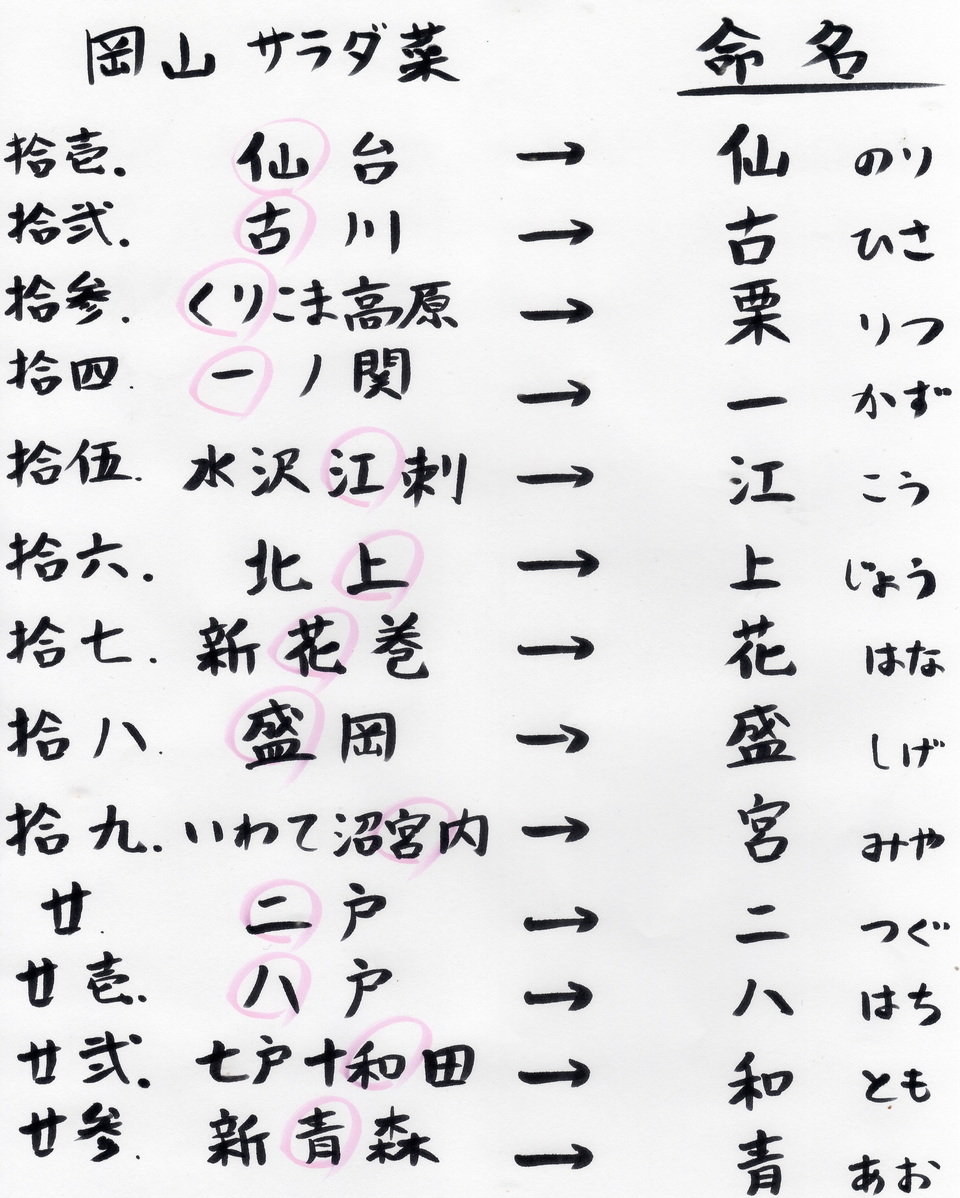 岡山 サラダ菜 命名
拾壱. 仙台 → 仙 のり
拾弐. 古川 → 古 ひさ
拾参. くりこま高原 → 栗 りつ
拾四. 一ノ関 → 一 かず
拾伍. 水沢江刺 → 江 こう
拾六. 北上 → 上 じょう
拾七. 新花巻 → 花 はな
拾八. 盛岡 → 盛 しげ
拾九. いわて沼宮内 → 宮 みや
廿. 二戸 → 二 つぐ
廿壱. 八戸 → 八 はち
廿弐. 七戸十和田 → 和 とも
廿参. 新青森 → 青 あお